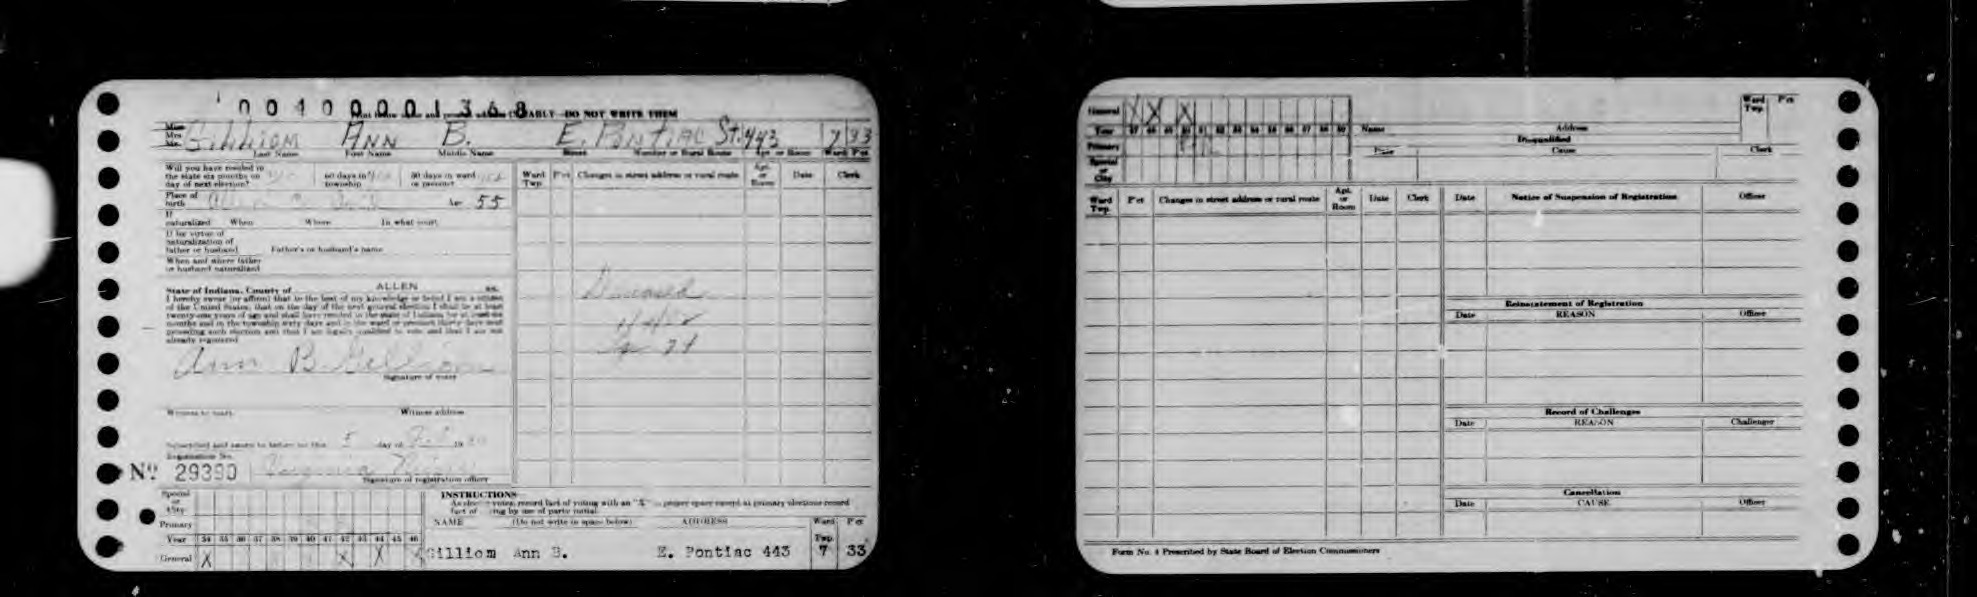 0040001368
Print below name and present address CLEARLY—DO NOT WRITE THEM
Miss
Mrs.
Mr.
Gilliom Ann B. E. Pontiac St. 443 7 33
Last Name First Name Middle Name Street Number or Rural Route Apt. or Room Ward Pct
Will you have resided in
the state six months on
day of next election?
60 days in
township
30 days in ward
or precinct
Place of
birth
Age 55
If
naturalized When Where In what court
If by virtue of
naturalization of
father or husband Father's or husband's name
When and where father
or husband naturalized
State of Indiana, County of ALLEN ss.
I hereby swear (or affirm) that to the best of my knowledge or belief I am a citizen
of the United States; that on the day of the next general election I shall be at least
twenty-one years of age and shall have resided in the state of Indiana for at least six
months and in the township sixty days and in the ward or precinct thirty days next
preceding such election and that I am legally qualified to vote and that I am not
already registered
Ann B. Gilliom
Signature of voter
Witness to mark Witness address
Subscribed and sworn to before me this 5 day of 19
Registration No.
No 29390 Virginia
Signature of registration officer
Ward
Twp. Pct Changes in street address or rural route Apt.
or
Room Date Clerk
Deceased
Special
or
City
Primary
Year 34 35 36 37 38 39 40 41 42 43 44 45 46
General X X X X
INSTRUCTIONS
As elector votes, record fact of voting with an "X" in proper space except at primary elections record
fact of voting by use of party initial.
NAME (Do not write in space below) ADDRESS Ward
Twp. Pct
Gilliom Ann B. E. Pontiac 443 7 33
General X X X
Year 47 48 49 50 51 52 53 54 55 56 57 58 59
Primary
Special
or
City
Name Address Ward
Twp. Pct
Disqualified
Date Cause Clerk
Ward
Twp. Pct Changes in street address or rural route Apt.
or
Room Date Clerk
Date Notice of Suspension of Registration Officer
Reinstatement of Registration
Date REASON Officer
Record of Challenges
Date REASON Challenger
Cancellation
Date CAUSE Officer
Form No. 4 Prescribed by State Board of Election Commissioners